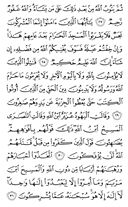 ثُمَّ يَتُوبُ ٱللَّهُ مِنۢ بَعْدِ ذَٰلِكَ عَلَىٰ مَن يَشَآءُ وَٱللَّهُ غَفُورٌ
رَّحِيمٌ ٢٧ يَٰٓأَيُّهَا ٱلَّذِينَ ءَامَنُوٓا۟ إِنَّمَا ٱلْمُشْرِكُونَ
نَجَسٌ فَلَا يَقْرَبُوا۟ ٱلْمَسْجِدَ ٱلْحَرَامَ بَعْدَ عَامِهِمْ هَٰذَا
وَإِنْ خِفْتُمْ عَيْلَةً فَسَوْفَ يُغْنِيكُمُ ٱللَّهُ مِن فَضْلِهِۦٓ إِن
شَآءَ إِنَّ ٱللَّهَ عَلِيمٌ حَكِيمٌ ٢٨ قَٰتِلُوا۟ ٱلَّذِينَ لَا
يُؤْمِنُونَ بِٱللَّهِ وَلَا بِٱلْيَوْمِ ٱلْءَاخِرِ وَلَا يُحَرِّمُونَ مَا حَرَّمَ
ٱللَّهُ وَرَسُولُهُۥ وَلَا يَدِينُونَ دِينَ ٱلْحَقِّ مِنَ ٱلَّذِينَ أُوتُوا۟
ٱلْكِتَٰبَ حَتَّىٰ يُعْطُوا۟ ٱلْجِزْيَةَ عَن يَدٍ وَهُمْ صَٰغِرُونَ
٢٩ وَقَالَتِ ٱلْيَهُودُ عُزَيْرٌ ٱبْنُ ٱللَّهِ وَقَالَتِ ٱلنَّصَٰرَى
ٱلْمَسِيحُ ٱبْنُ ٱللَّهِ ذَٰلِكَ قَوْلُهُم بِأَفْوَٰهِهِمْ
يُضَٰهِـُٔونَ قَوْلَ ٱلَّذِينَ كَفَرُوا۟ مِن قَبْلُ قَٰتَلَهُمُ
ٱللَّهُ أَنَّىٰ يُؤْفَكُونَ ٣٠ ٱتَّخَذُوٓا۟ أَحْبَارَهُمْ
وَرُهْبَٰنَهُمْ أَرْبَابًا مِّن دُونِ ٱللَّهِ وَٱلْمَسِيحَ ٱبْنَ
مَرْيَمَ وَمَآ أُمِرُوٓا۟ إِلَّا لِيَعْبُدُوٓا۟ إِلَٰهًا وَٰحِدًا
لَّآ إِلَٰهَ إِلَّا هُوَ سُبْحَٰنَهُۥ عَمَّا يُشْرِكُونَ ٣١